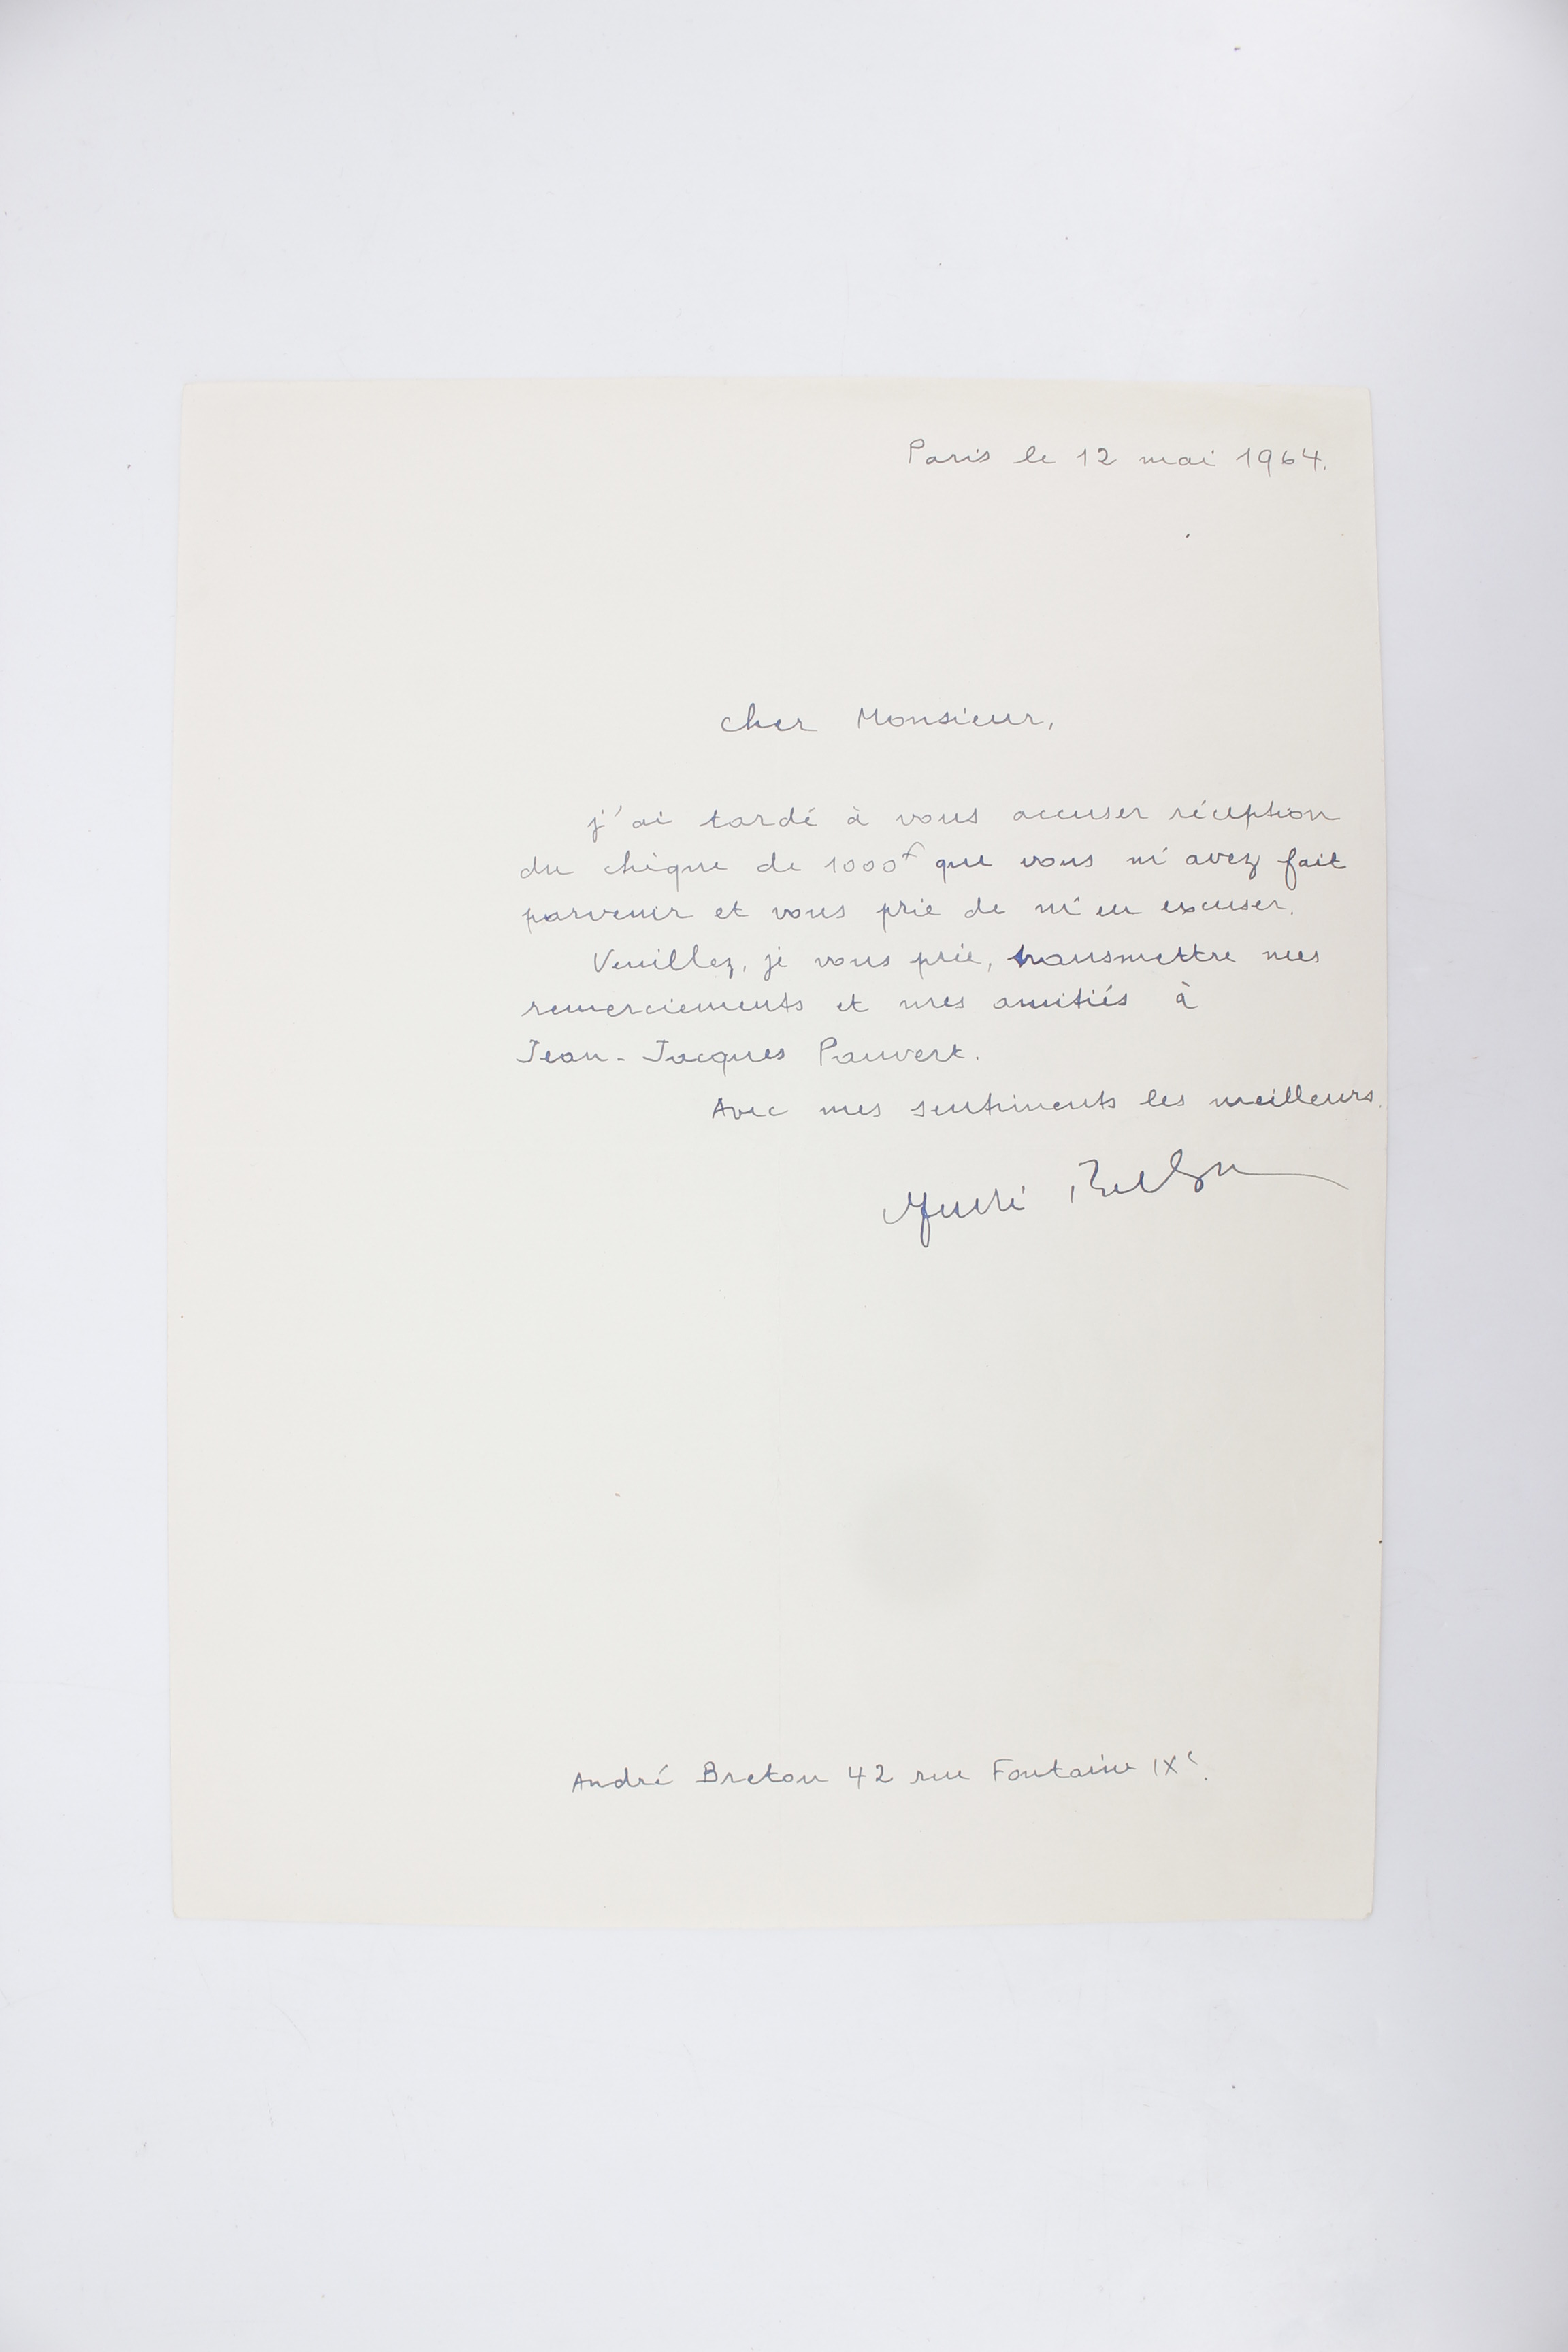 Paris le 12 mai 1964.
cher Monsieur,
j'ai tardé à vous accuser réception
du chèque de 1000f que vous m'avez fait
parvenir et vous prie de m'en excuser.
Veuillez, je vous prie, transmettre mes
remerciements et mes amitiés à
Jean-Jacques Pauvert.
Avec mes sentiments les meilleurs.
André Breton
André Breton 42 rue Fontaine IXe.